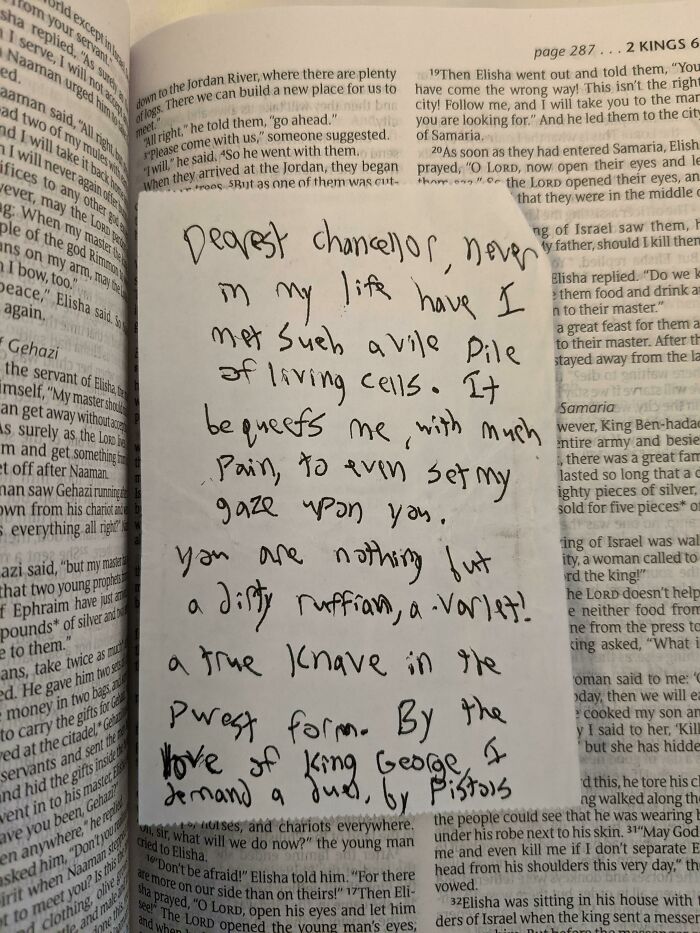 world except in Israel
sha replied, "As surely as
I serve, I will not accept
Naaman urged him
ed.
aaman said, "All right, but
ad two of my mules with
nd I will take it back home
n I will never again offer
ifices to any other god
ever, may the LORD
g: When my master the
ple of the god Rimmon to
ans on my arm, may the
n I bow, too."
peace," Elisha said. So
again.
f Gehazi
the servant of Elisha, the
imself, "My master should
an get away without accepting
As surely as the LORD lives
m and get something from
et off after Naaman.
man saw Gehazi running after
own from his chariot and
s everything all right?"
azi said, "but my master
that two young prophets
f Ephraim have just arrived
pounds* of silver and two
e to them."
ans, take twice as much
ed. He gave him two sets
e money in two bags, and
to carry the gifts for Gehazi
ved at the citadel,* Gehazi
servants and sent the men
nd hid the gifts inside the
vent in to his master, Elisha
ave you been, Gehazi?"
en anywhere," he replied
asked him, "Don't you re-
irit when Naaman stepped
t to meet you? Is this the
nd clothing, olive
page 287 . . . 2 KINGS 6
down to the Jordan River, where there are plenty
of logs. There we can build a new place for us to
meet."
"All right," he told them, "go ahead."
3"Please come with us," someone suggested.
"I will," he said. 4So he went with them.
When they arrived at the Jordan, they began
trees. 5But as one of them was cut-
Dearest chancellor, never
in my life have I
met such a vile pile
of living cells. It
bequeefs me, with much
pain, to even set my
gaze upon you.
you are nothing but
a dirty ruffian, a varlet!
a true knave in the
purest form. By the
love of King George, I
demand a duel, by pistols
horses, and chariots everywhere.
"Oh, sir, what will we do now?" the young man
cried to Elisha.
16"Don't be afraid!" Elisha told him. "For there
are more on our side than on theirs!" 17Then Eli-
sha prayed, "O LORD, open his eyes and let him
see!" The LORD opened the young man's eyes,
and when
19Then Elisha went out and told them, "You
have come the wrong way! This isn't the right
city! Follow me, and I will take you to the man
you are looking for." And he led them to the city
of Samaria.
20As soon as they had entered Samaria, Elisha
prayed, "O LORD, now open their eyes and let
them see." So the LORD opened their eyes, and
that they were in the middle of
ng of Israel saw them, h
My father, should I kill them
Elisha replied. "Do we k
them food and drink a
n to their master."
a great feast for them a
to their master. After th
stayed away from the la
Samaria
wever, King Ben-hadad
entire army and besie
, there was a great fam
lasted so long that a d
ighty pieces of silver,
sold for five pieces* of
ing of Israel was wal
ity, a woman called to
ord the king!"
he LORD doesn't help
neither food from
ne from the press to
king asked, "What i
oman said to me: 'C
oday, then we will ea
cooked my son an
y I said to her, 'Kill
but she has hidde
rd this, he tore his cl
ng walked along the
the people could see that he was wearing b
under his robe next to his skin. 31"May God
me and even kill me if I don't separate E
head from his shoulders this very day," the
vowed.
32Elisha was sitting in his house with t
ders of Israel when the king sent a messen